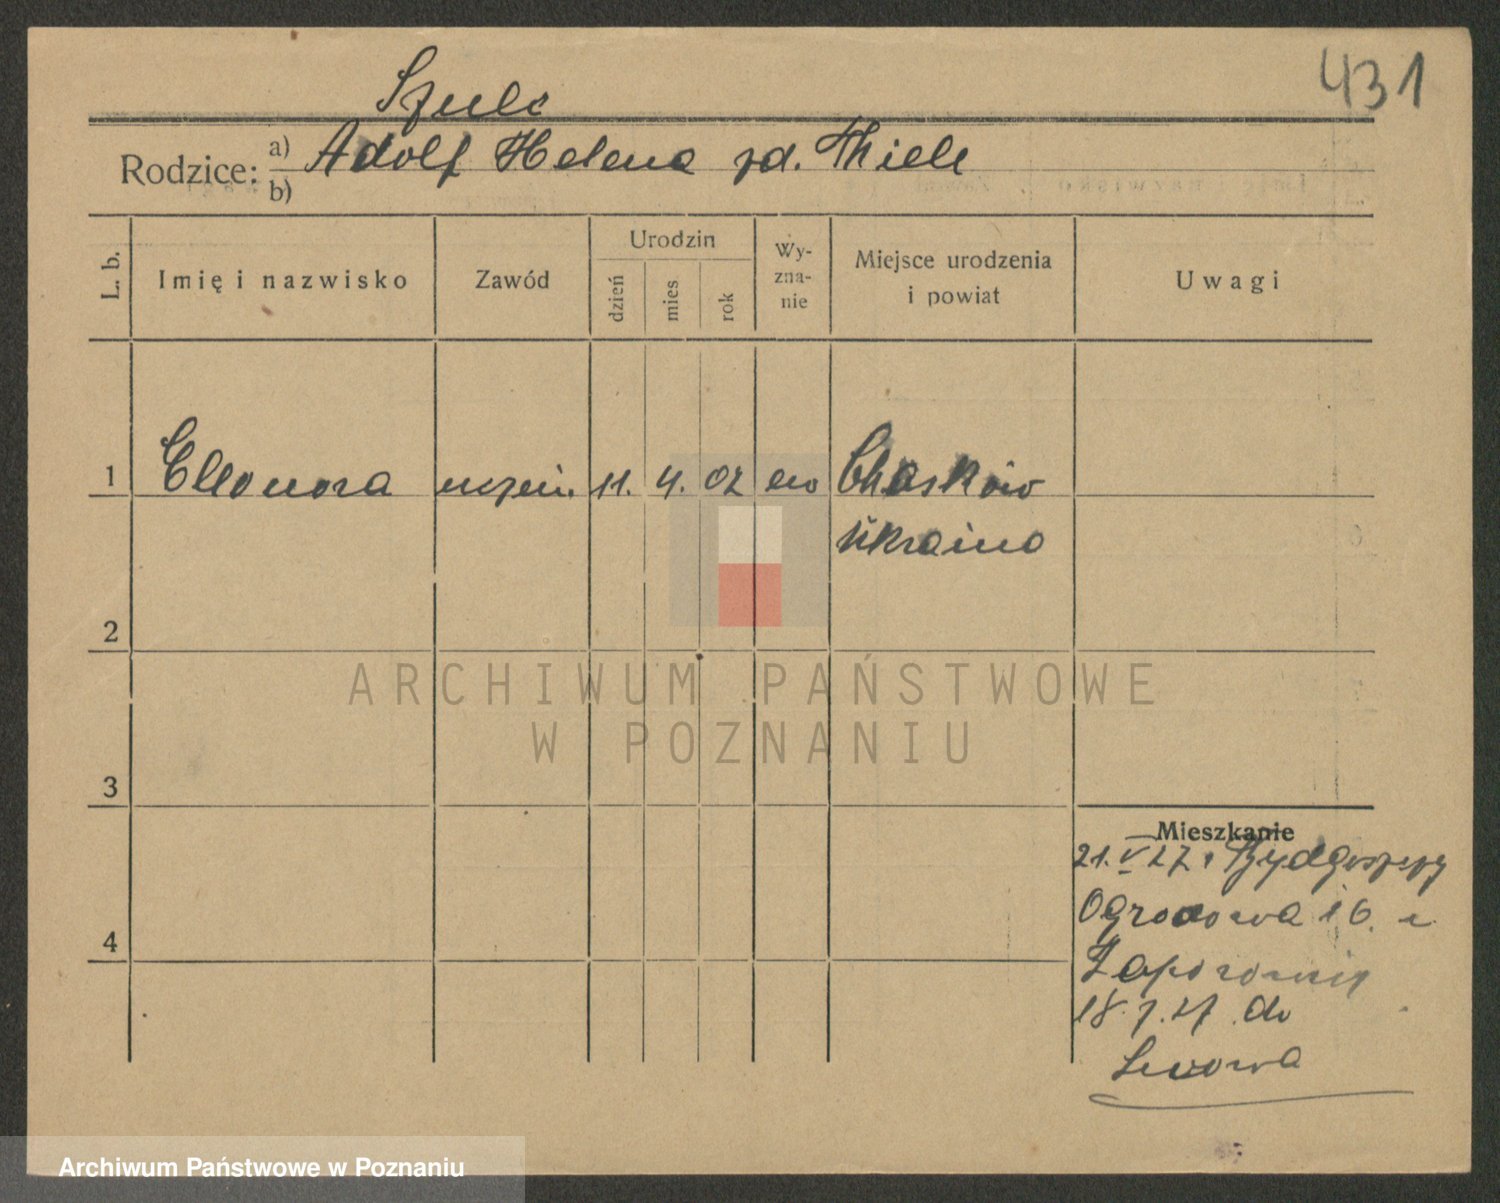 431
Szulc
Rodzice: a) Adolf Helena zd. Thiele
b)
L. b. Imię i nazwisko Zawód Urodzin dzień mies rok Wy-zna-nie Miejsce urodzenia i powiat Uwagi
1 Eleonora uczen. 11. 4. 02 ew Charków
Ukraina
2
ARCHIWUM PAŃSTWOWE
W POZNANIU
3
Mieszkanie
21. V 27. Bydgoszczy
Ogrodowa 16. u
4
18. 7. 27. do
Lwowa
Archiwum Państwowe w Poznaniu